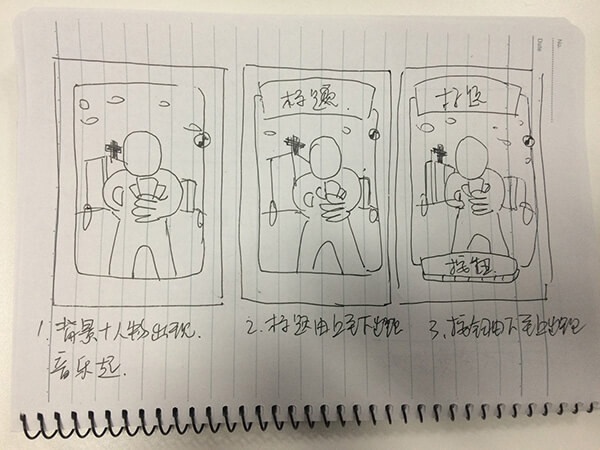 No.
Date
标题
标题
按钮
1. 背景+人物出现.
音乐起.
2. 标题由上至下出现
3. 按钮由下至上出现